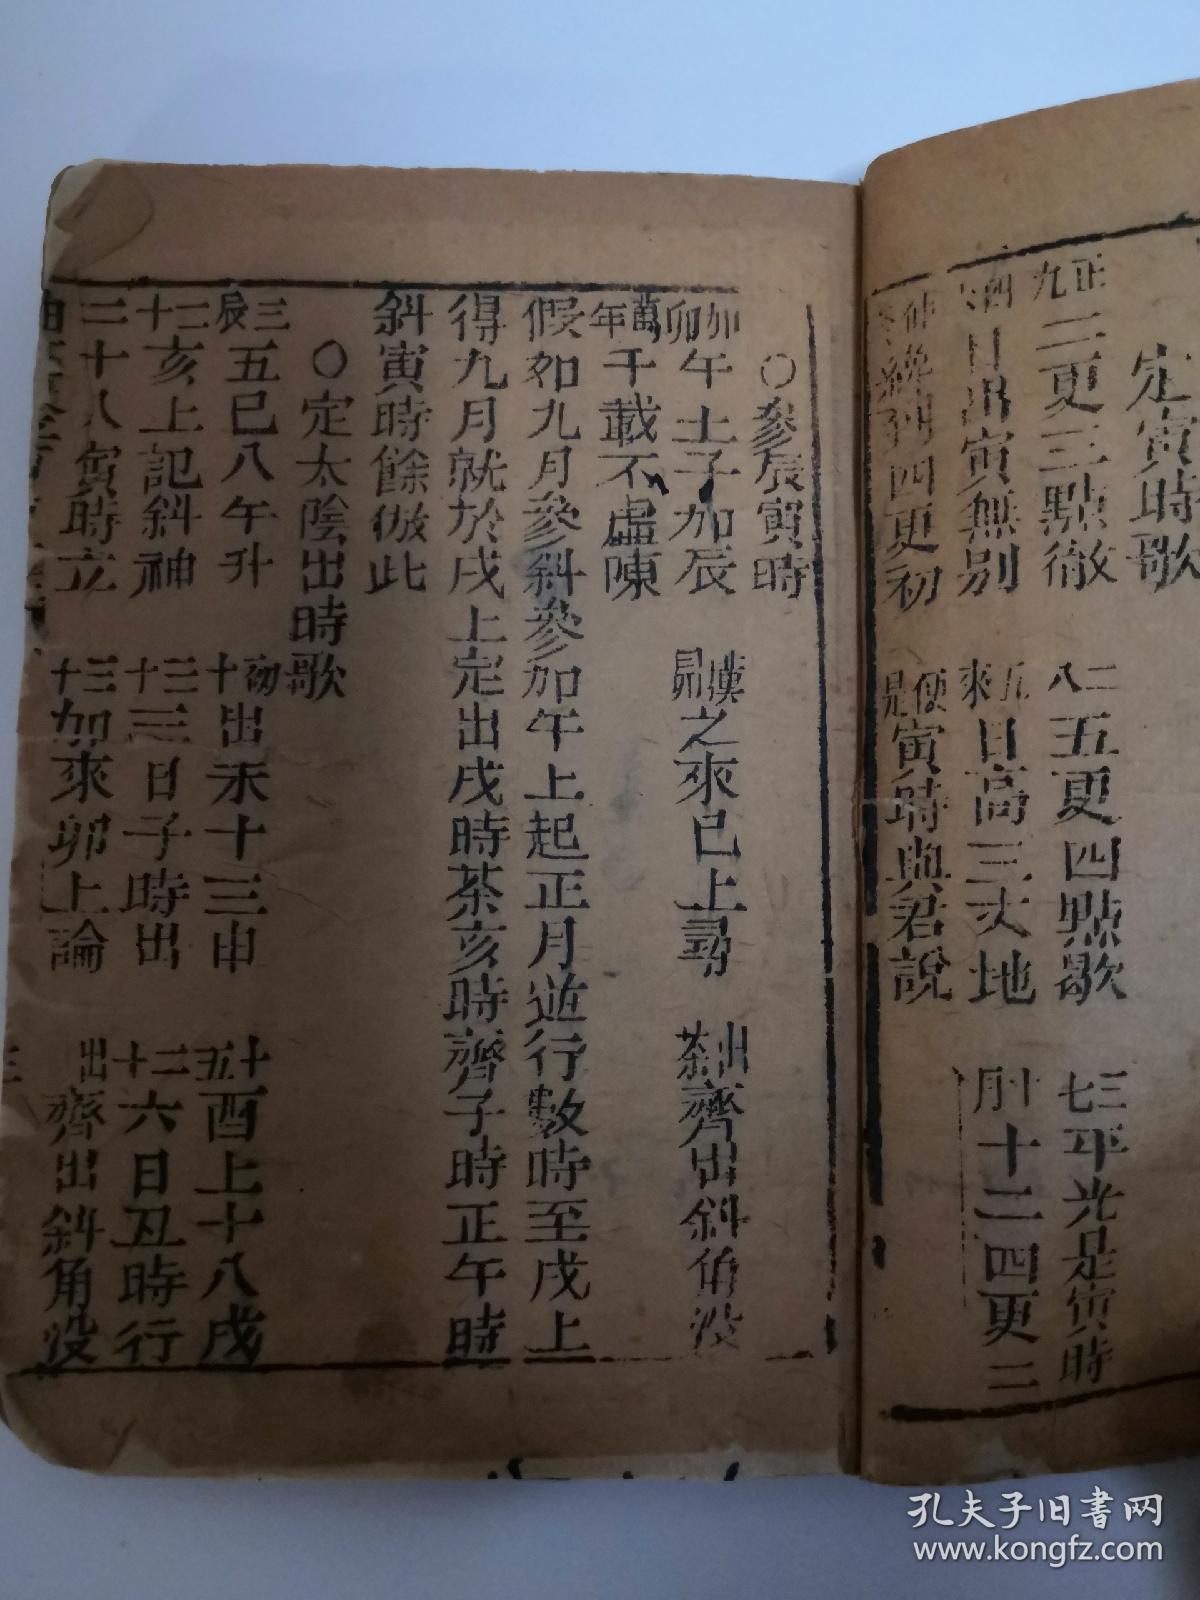 定寅時歌
正九二更三點徹　二八五更四點歇　三七平光是寅時
四六日出寅無別　五來日高三丈地　十月十二四更二
仲冬纔到四更初　便是寅時與君說
○參辰寅時
加卯午土子加辰　漢昴之來巳上尋　出茶齊出斜角沒
萬年千載不虛陳
假如九月參斜參加午上起正月遊行數時至戌上
得九月就於戌上定出戌時茶亥時齊子時正午時
斜寅時餘倣此
○定太陰出時歌
三辰五巳八午升　初十出未十三申　十五酉上十八戌
二十亥上記斜神　二十三日子時出　二十六日丑時行
二十八寅時立　三十加來卯上論　出齊出斜角沒
孔夫子旧书网
www.kongfz.com